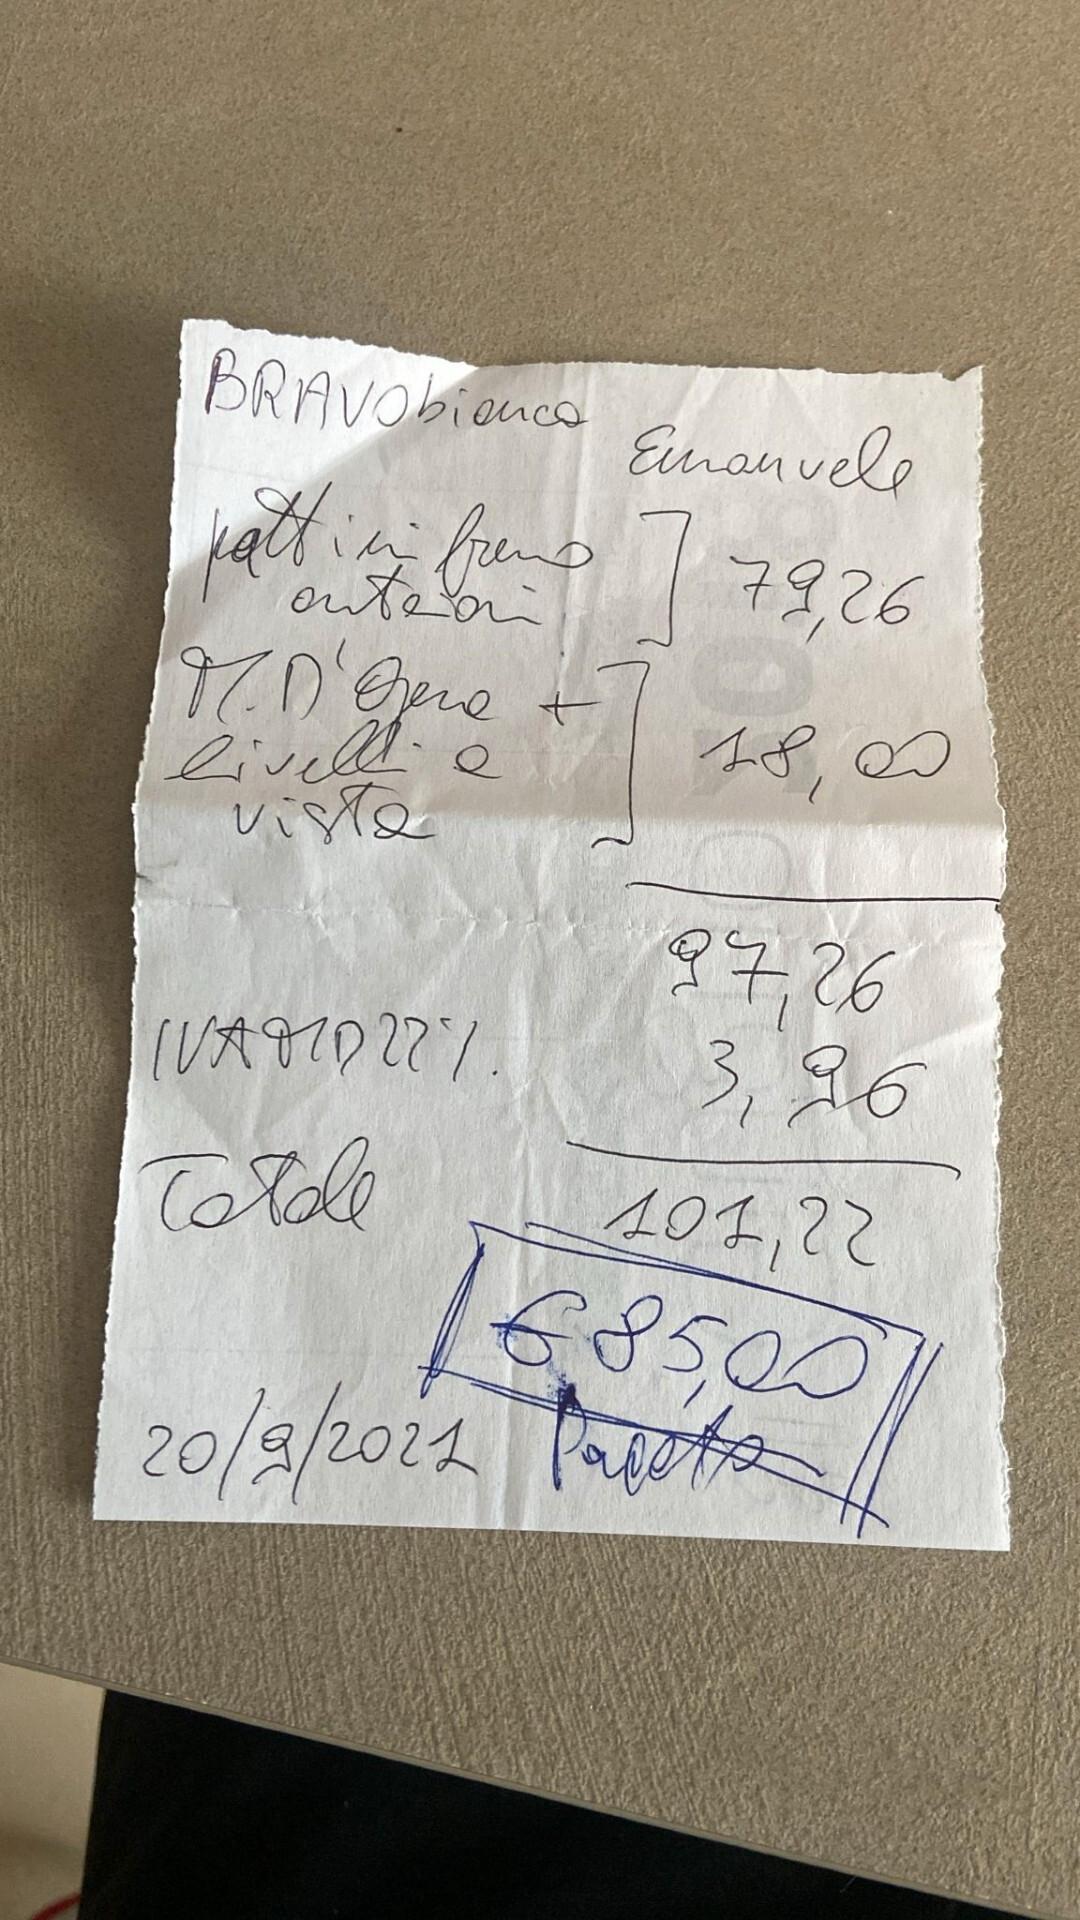 BRAVO bianca
Emanuele
pattini freno
anteriori
79,26
M. D'Opera +
livelli e
vista
18,00
97,26
IVA MD 22%.
3,96
Totale
101,22
€ 85,00
20/9/2021